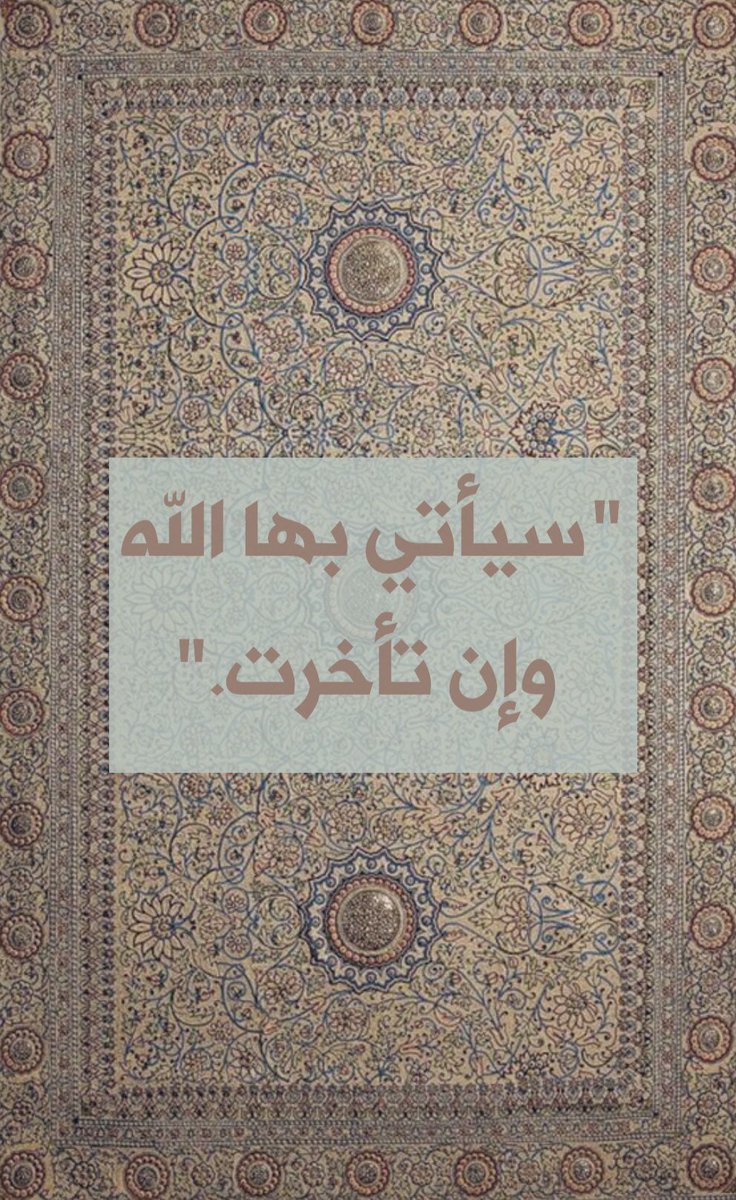 "سيأتي بها الله
وإن تأخرت."